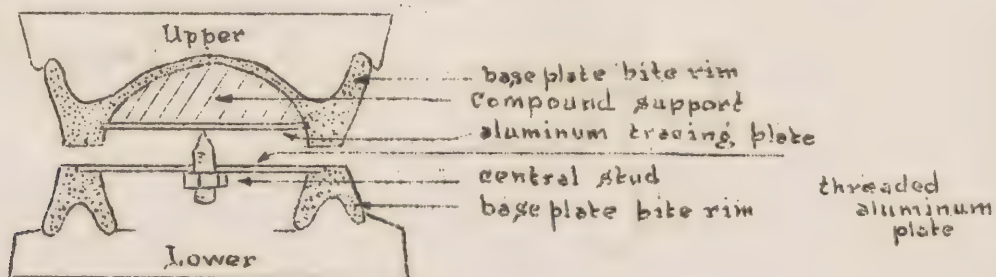 Upper
base plate bite rim
compound support
aluminum tracing plate
central stud
base plate bite rim
threaded
aluminum
plate
Lower